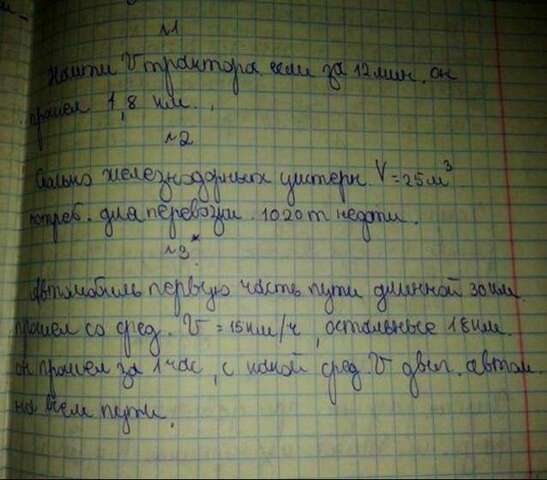 №1
Найти V трактора если за 12 мин. он
прошел 1,8 км.
№2
Сколько железнодорожных цистерн. V=25м³
потреб. для перевозки. 1020 т нефти.
№3*
Автомобиль первую часть пути длинной 30 км.
прошел со сред. V=15км/ч, остальные 18 км.
он прошел за 1 час, с какой сред. V двиг. автом.
на всем пути.